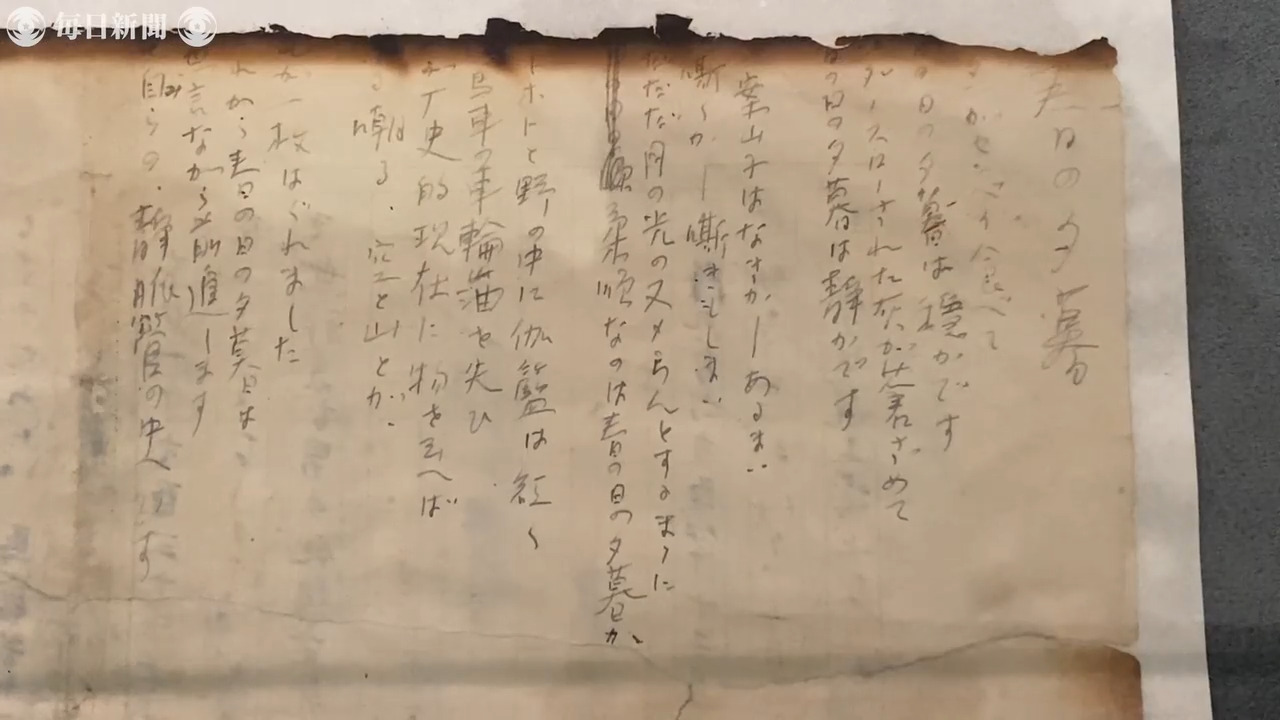 春日の夕暮
がセンベイ食べて
の日の夕暮は穏かです
ダースローされた灰が蒼ざめて
の日の夕暮は静かです
案山子はなさかーあるまい
嘶くかー嘶きもしまい
ただ月の光のヌメらんとするまゝに
柔順なのは春の日の夕暮か
ホトと野の中に伽藍は紅く
馬車の車輪油を失ひ
が歴史的現在に物を云へば
嘲る、空と山とが、
が一枚はぐれました
れから春の日の夕暮は
言ながら前進します
自らの、静脈管の中へです
毎日新聞